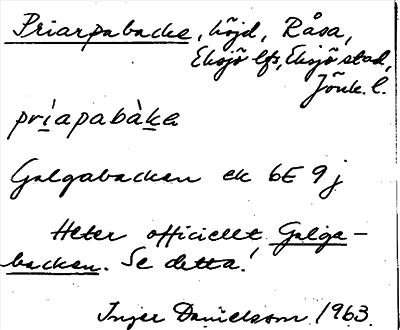 Priarpabacke, höjd, Råsa,
Eksjö lfs, Eksjö stad,
Jönk. l.
priapabàka
Galgabacken ek 6E 9j
Heter officiellt Galga-
backen. Se detta!
Inger Danielsson 1963.